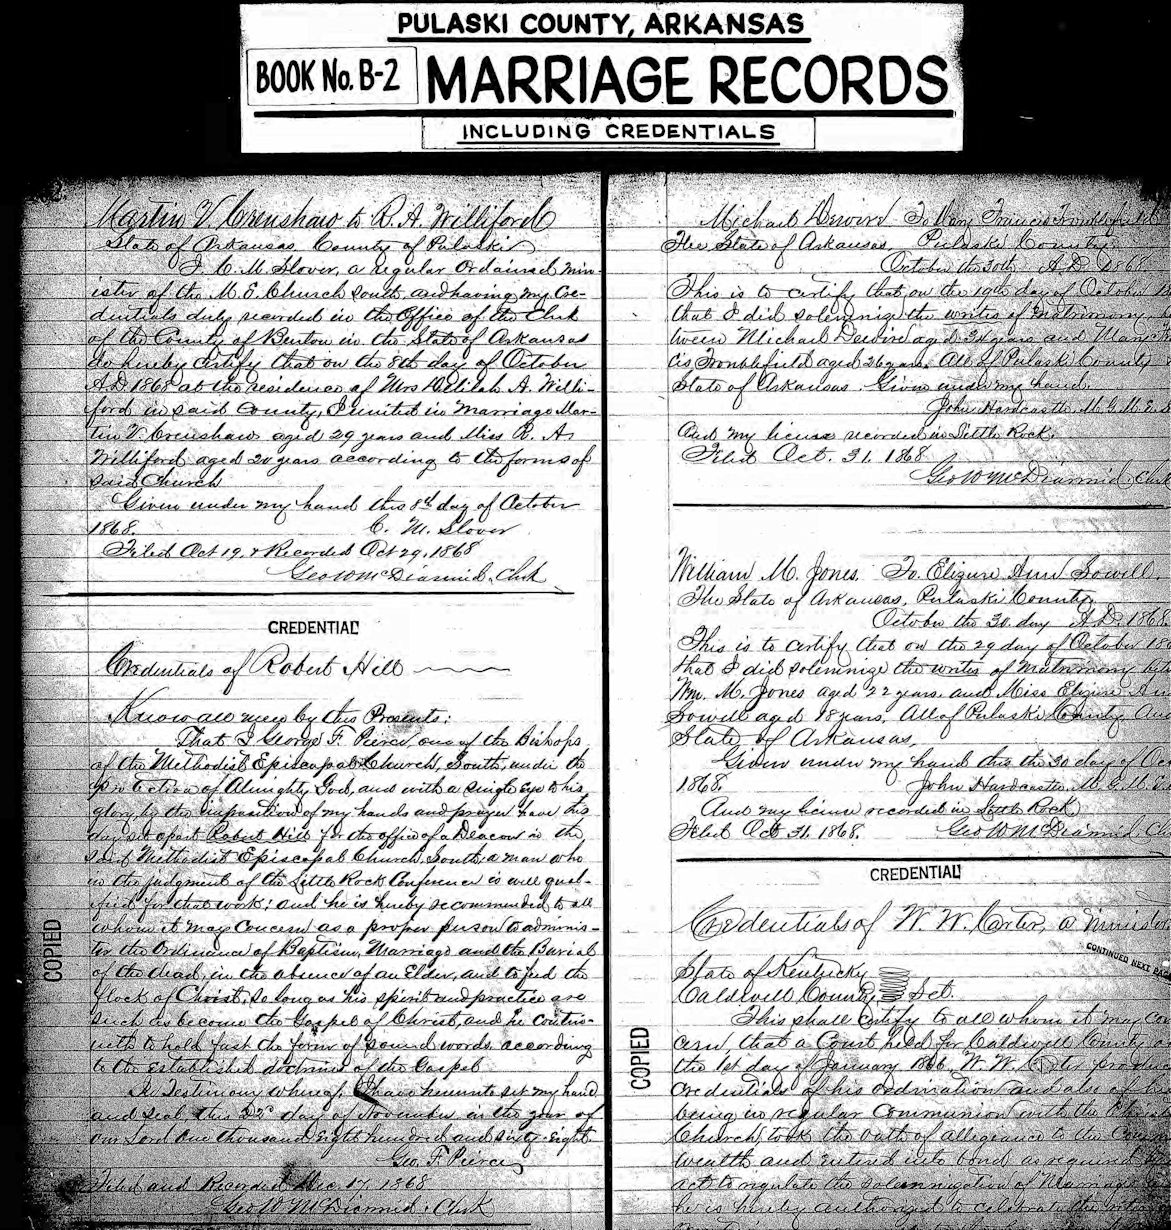 PULASKI COUNTY, ARKANSAS
BOOK No. B-2
MARRIAGE RECORDS
INCLUDING CREDENTIALS
Martin V. Crenshaw to R. A. Williford
State of Arkansas, County of Pulaski
I, C. M. Slover, a regular Ordained Min-
ister of the M. E. Church South, and having my Cre-
dentials duly recorded in the Office of the Clerk
of the County of Benton in the State of Arkansas
do hereby certify that on the 8th day of October
A.D. 1868 at the residence of Mrs Delilah A. Willi-
ford in said County, I united in marriage Mar-
tin V. Crenshaw aged 29 years and Miss R. A.
Williford aged 20 years according to the forms of
said Church
Given under my hand this 8th day of October
1868. C. M. Slover
Filed Oct 19, & Recorded Oct 29, 1868
Geo W McDiarmid, Clerk
CREDENTIAL
Credentials of Robert Hill
Know all men by this Presents:
That I George F. Pierce, one of the Bishops
of the Methodist Episcopal Church, South, under the
protection of Almighty God, and with a single eye to his
glory, by the imposition of my hands and prayer have this
day set apart Robert Hill for the office of a Deacon in the
said Methodist Episcopal Church, South, a man who
in the judgment of the Little Rock Conference is well qual-
ified for that work; and he is hereby recommended to all
whom it may concern as a proper person to adminis-
ter the Ordinance of Baptism, Marriage and the Burial
of the dead, in the absence of an Elder, and to feed the
flock of Christ, so long as his spirit and practice are
such as become the Gospel of Christ, and he contin-
ueth to hold fast the form of sound words, according
to the established doctrine of the Gospel
In Testimony whereof, I have hereunto set my hand
and seal this 22d day of November in the year of
our Lord One thousand Eight hundred and sixty-eight.
Geo. F. Pierce
Filed and Recorded Dec 17, 1868
Geo W McDiarmid, Clerk
COPIED
Michael Dewire To Mary Francis
The State of Arkansas, Pulaski County
October the 30th A.D. 1868
This is to certify that on the 19th day of October
that I did solemnize the writes of matrimony
tween Michael Dewire aged 34 years and Mary
cis Tromblefield aged 26 years. All of Pulaski County
State of Arkansas. Given under my hand.
John Hardcastle M. G. M. E.
And my license recorded in Little Rock.
Filed Oct. 31. 1868
Geo W McDiarmid, Clerk
William M. Jones. To. Elizure Ann Sowell.
The State of Arkansas, Pulaski County
October the 30. day A.D. 1868.
This is to certify that on the 29 day of October
that I did solemnize the writes of matrimony
Wm. M. Jones aged 22 years. and Miss Elizure
Sowell aged 18 years, All of Pulaski County,
State of Arkansas,
Given under my hand this the 30 day of Oct
1868. John Hardcastle, M. G. M. E.
And my license recorded in Little Rock
Filed Oct 31. 1868. Geo W McDiarmid
CREDENTIAL
Credentials of W. W. Carter, a Minister
CONTINUED NEXT PAGE
State of Kentucky
Caldwell County Sct.
This shall certify to all whom it may con
cern, that a Court held for Caldwell County on
the 1st day of January 1866, W. W. Carter produced
credentials of his ordination and also of his
being in regular Communion with the
Church, took the oath of allegiance to the Common
wealth and entered into bond as required
act to regulate the solemnization of Marriage
he is hereby authorized to celebrate the
COPIED